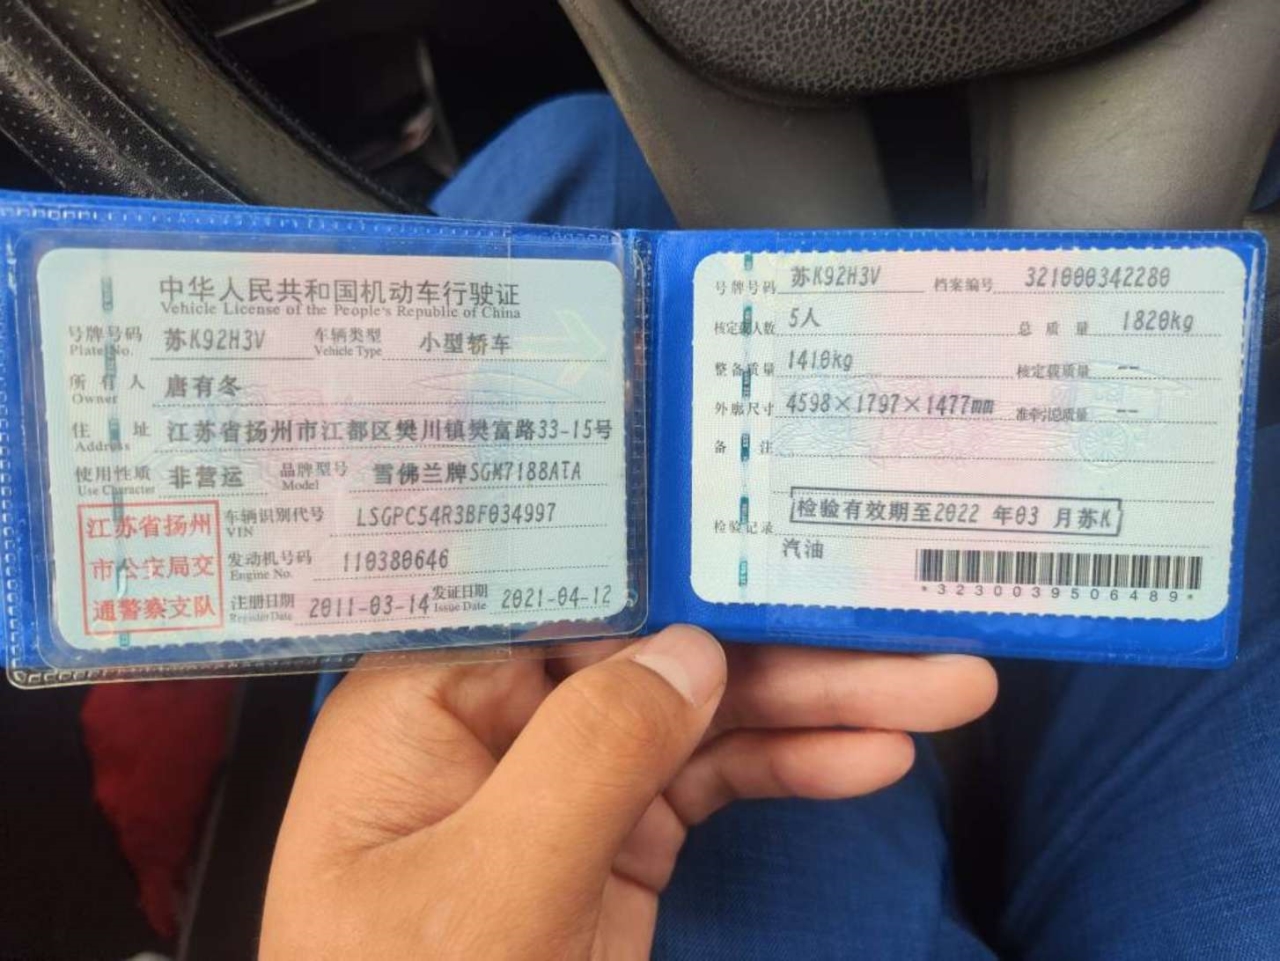 中华人民共和国机动车行驶证
Vehicle License of the People's Republic of China
号牌号码 苏K92H3V 车辆类型 小型轿车
Plate No. Vehicle Type
所有人 唐有冬
Owner
住址 江苏省扬州市江都区樊川镇樊富路33-15号
Address
使用性质 非营运 品牌型号 雪佛兰牌SGM7188ATA
Use Character Model
江苏省扬州
市公安局交
通警察支队
车辆识别代号 LSGPC54R3BF034997
VIN
发动机号码 110380646
Engine No.
注册日期 2011-03-14 发证日期 2021-04-12
Register Date Issue Date
号牌号码 苏K92H3V 档案编号 321000342280
核定载人数 5人 总质量 1820kg
整备质量 1410kg 核定载质量 --
外廓尺寸 4598×1797×1477mm 准牵引总质量 --
备注
检验记录 检验有效期至2022 年03 月苏K
汽油
*3230039506489*